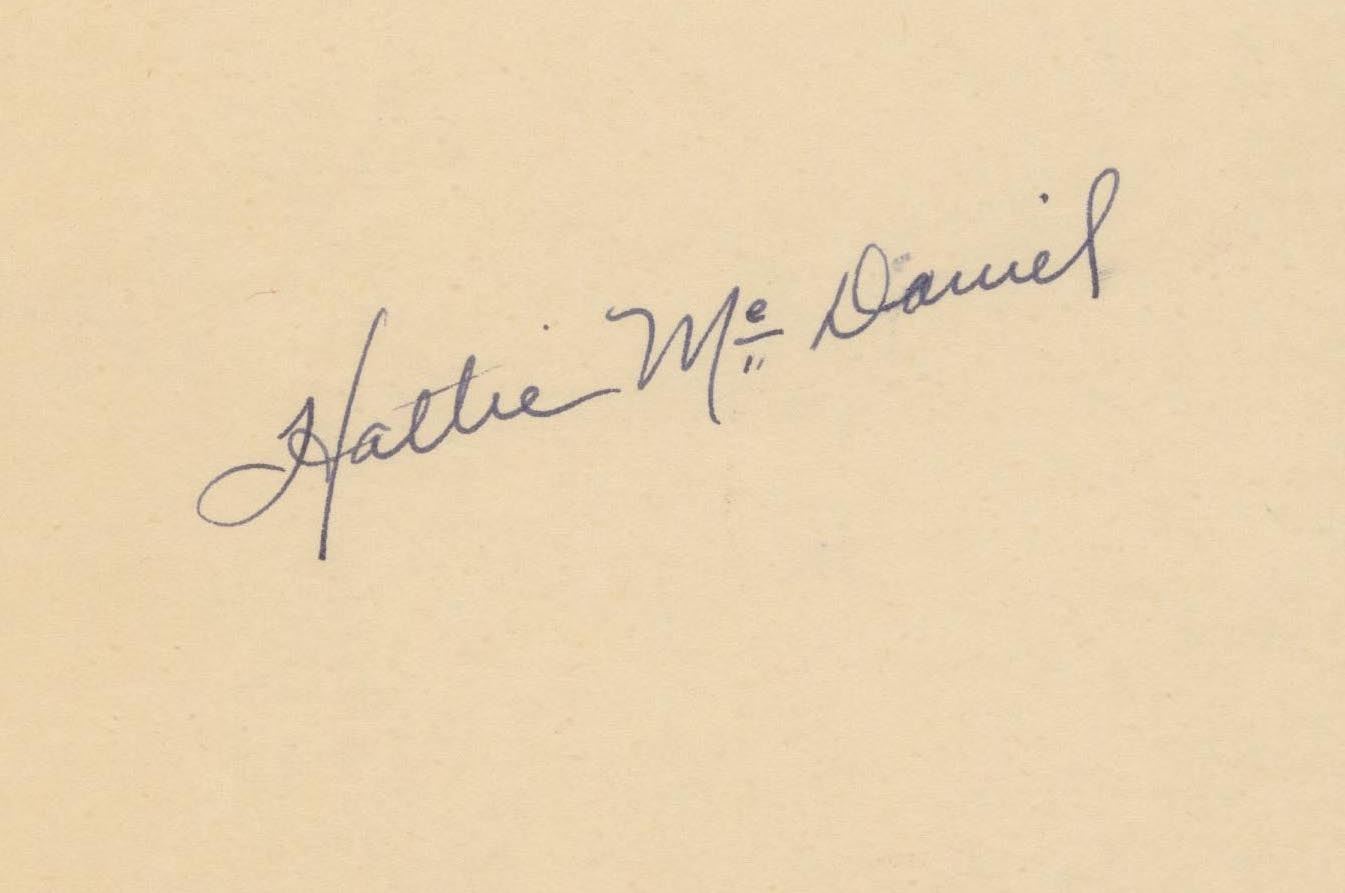 Hattie McDaniel